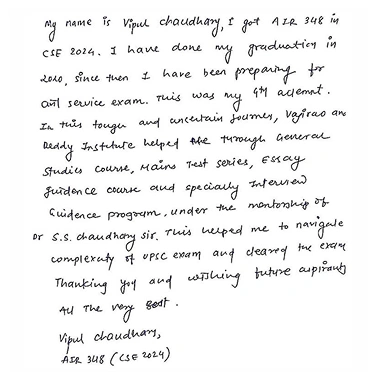 My name is Vipul chaudhary, I got AIR 348 in
CSE 2024. I have done my graduation in
2020, since then I have been preparing for
civil service exam. This was my 4th attempt.
In this tough and uncertain journey, Vajirao and
Reddy Institute helped me through General
studies course, Mains Test series, Essay
guidence course and specialy Interview
Guidence program, under the mentorship of
Dr S.S. chaudhary sir. This helped me to navigate
complexity of UPSC exam and cleared the exam
Thanking you and wishing future aspirants
All The very best.
Vipul chaudhary,
AIR 348 (CSE 2024)